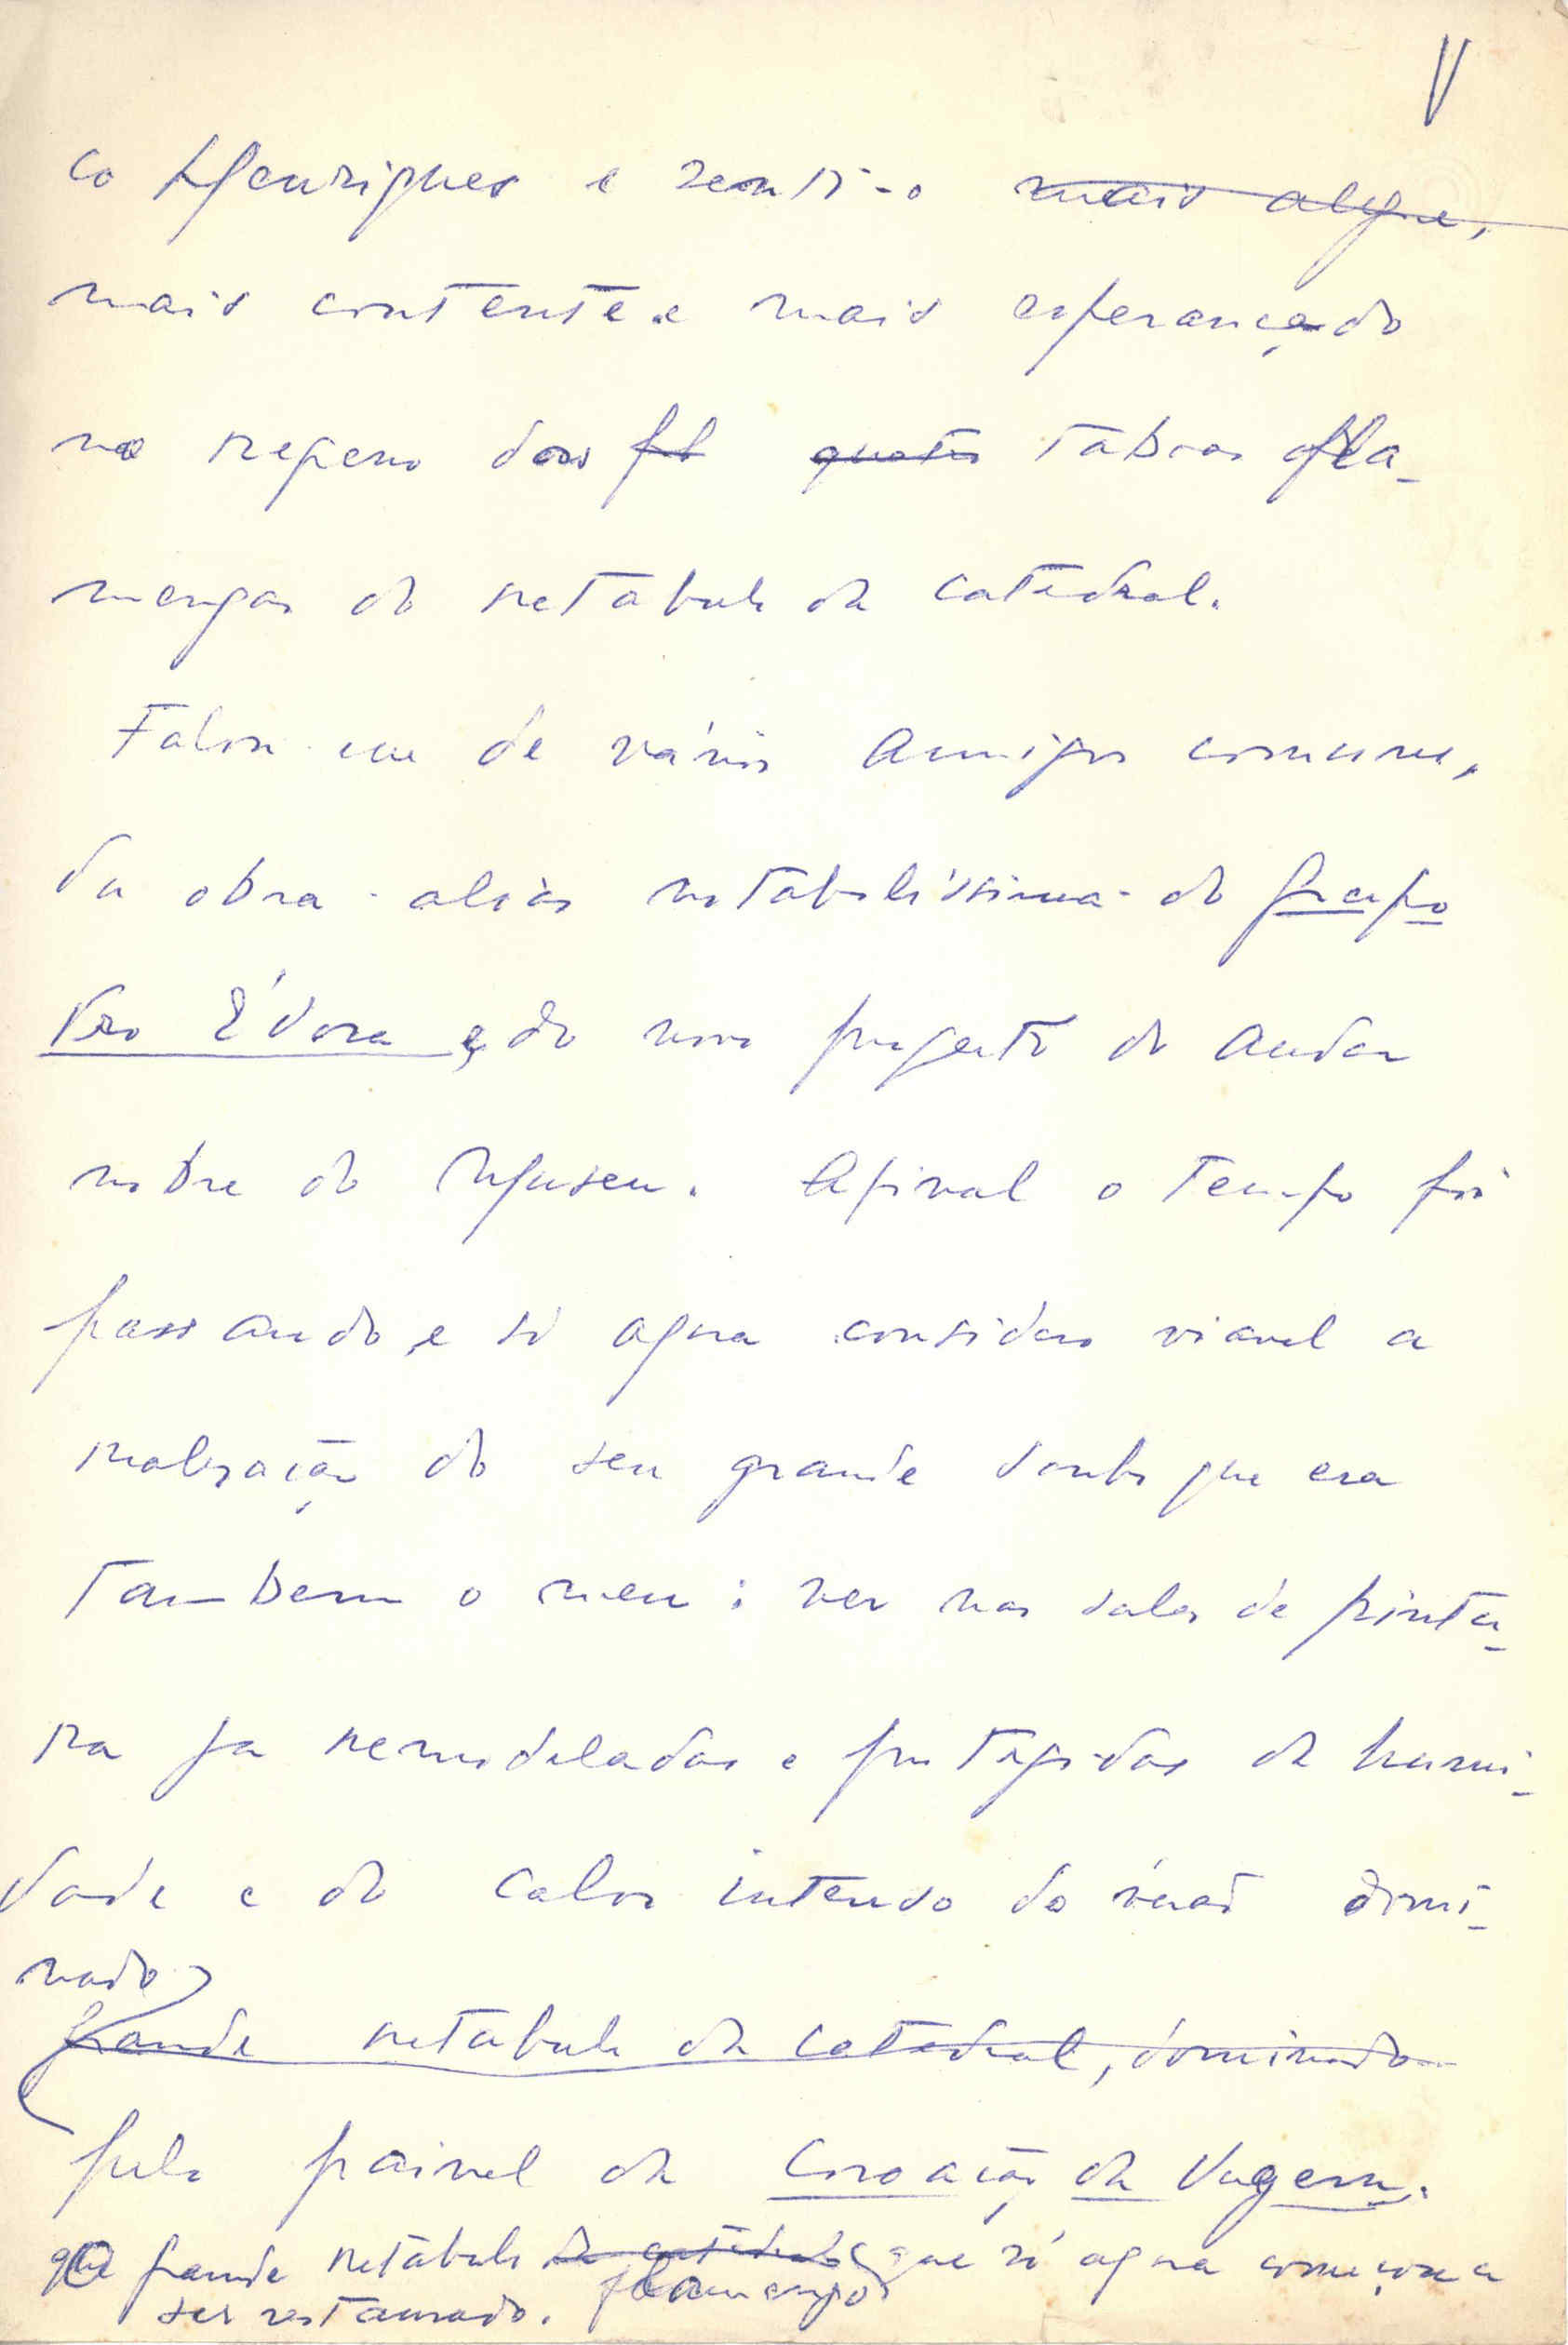 V
co Henriques e senti-o mais alegre,
mais contente e mais esperançado
no regresso das fl quatro tabuas fla-
mengas do retabulo da catedral.
Falou-me de vários amigos comuns,
da obra - aliás notabilíssima - do Grupo
Pro Évora e do novo projecto do andar
nobre do Museu. Afinal o tempo foi
passando, e só agora considero viavel a
realização do seu grande sonho que era
tambem o meu: ver nas salas de pintu-
ra ja remodeladas e protegidas da humi-
dade e do calor intenso do verão domi-
nado
grande retabulo da catedral, dominado
pelo painel da Coroação da Virgem.
o grande retábulo da catedral que só agora começou a
flamengo
ser restaurado.